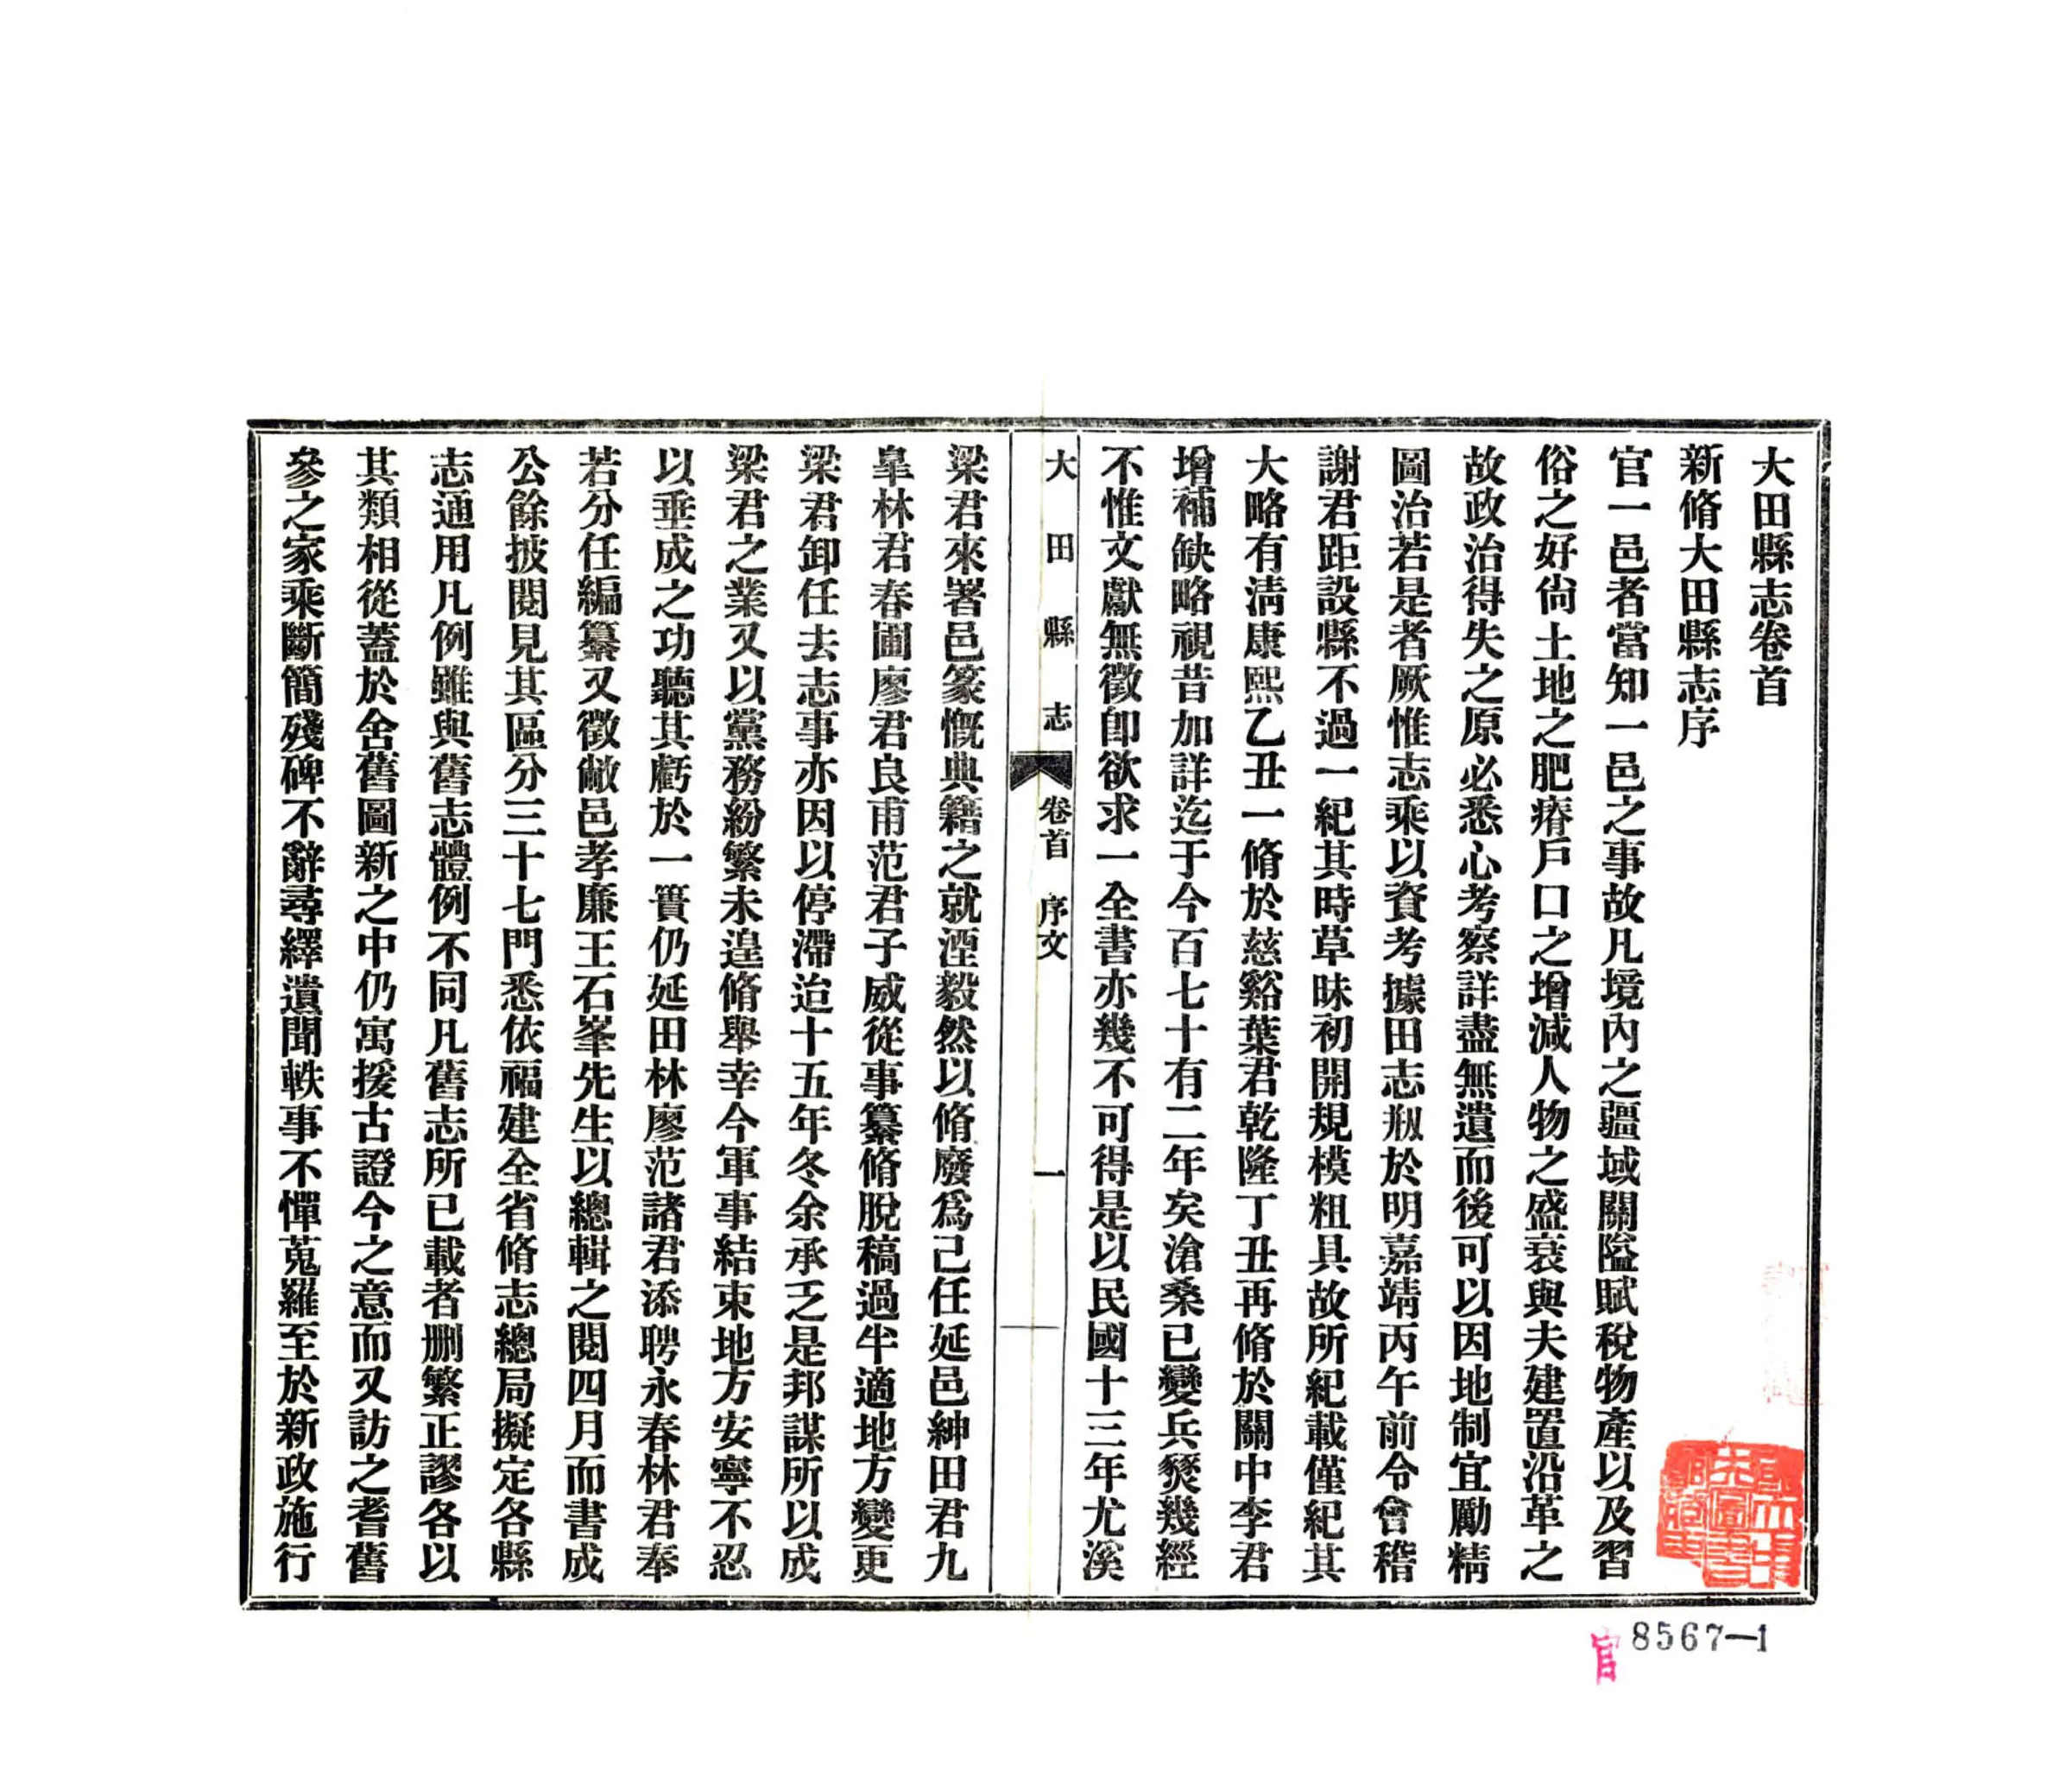 大田縣志卷首
新脩大田縣志序
官一邑者當知一邑之事故凡境內之疆域關隘賦稅物產以及習
俗之好尙土地之肥瘠戶口之增減人物之盛衰與夫建置沿革之
故政治得失之原必悉心考察詳盡無遺而後可以因地制宜勵精
圖治若是者厥惟志乘以資考據田志剏於明嘉靖丙午前令會稽
謝君距設縣不過一紀其時草昧初開規模粗具故所紀載僅紀其
大略有淸康熙乙丑一脩於慈谿葉君乾隆丁丑再脩於關中李君
增補缺略視昔加詳迄于今百七十有二年矣滄桑已變兵燹幾經
不惟文獻無徵卽欲求一全書亦幾不可得是以民國十三年尤溪
大田縣志 卷首 序文 一
梁君來署邑篆慨典籍之就湮毅然以脩廢爲己任延邑紳田君九
皐林君春圃廖君良甫范君子威從事纂脩脫稿過半適地方變更
梁君卸任去志事亦因以停滯迨十五年冬余承乏是邦謀所以成
梁君之業又以黨務紛繁未遑脩舉幸今軍事結束地方安寧不忍
以垂成之功聽其虧於一簣仍延田林廖范諸君添聘永春林君奉
若分任編纂又徵敝邑孝廉王石峯先生以總輯之閱四月而書成
公餘披閱見其區分三十七門悉依福建全省脩志總局擬定各縣
志通用凡例雖與舊志體例不同凡舊志所已載者删繁正謬各以
其類相從蓋於舍舊圖新之中仍寓援古證今之意而又訪之耆舊
參之家乘斷簡殘碑不辭尋繹遺聞軼事不憚蒐羅至於新政施行
官 8567-1